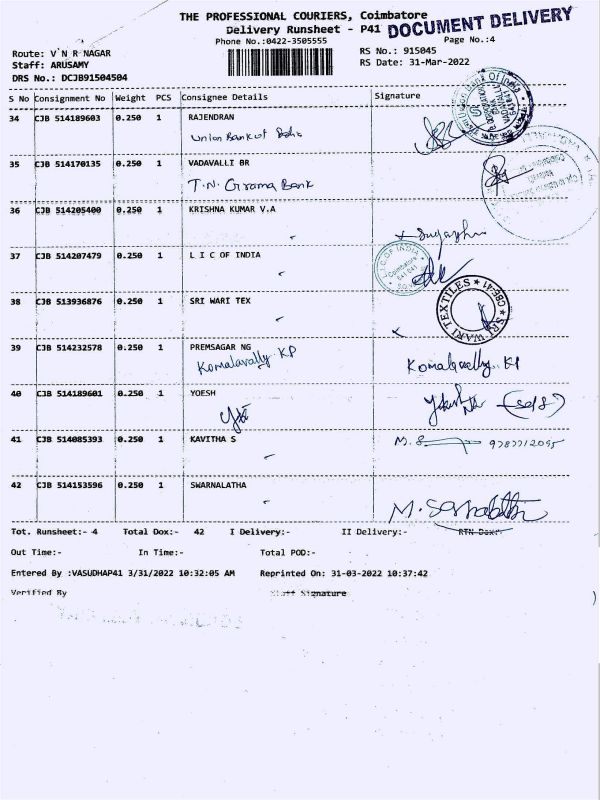 THE PROFESSIONAL COURIERS, Coimbatore
DOCUMENT DELIVERY
Delivery Runsheet - P41
Phone No.:0422-3505555
Page No.:4
Route: V N R NAGAR
RS No.: 915045
Staff: ARUSAMY
RS Date: 31-Mar-2022
DRS No.: DCJB91504504
S No Consignment No Weight PCS Consignee Details Signature
34 CJB 514189603 0.250 1 RAJENDRAN
Union Bank of
35 CJB 514170135 0.250 1 VADAVALLI BR
T.N. Grama Bank
36 CJB 514205400 0.250 1 KRISHNA KUMAR V.A
37 CJB 514207479 0.250 1 L I C OF INDIA
L.I.C. OF INDIA
Coimbatore
641 041
38 CJB 513936876 0.250 1 SRI WARI TEX
SRI WARI TEXTILES CBE-41
39 CJB 514232578 0.250 1 PREMSAGAR NG
Komalavally. KP Komalavally. KP
40 CJB 514189601 0.250 1 YOESH
41 CJB 514085393 0.250 1 KAVITHA S
M. S 9787712095
42 CJB 514153596 0.250 1 SWARNALATHA
Tot. Runsheet:- 4 Total Dox:- 42 I Delivery:- II Delivery:- RTN Dox:-
Out Time:- In Time:- Total POD:-
Entered By :VASUDHAP41 3/31/2022 10:32:05 AM Reprinted On: 31-03-2022 10:37:42
Verified By Staff Signature